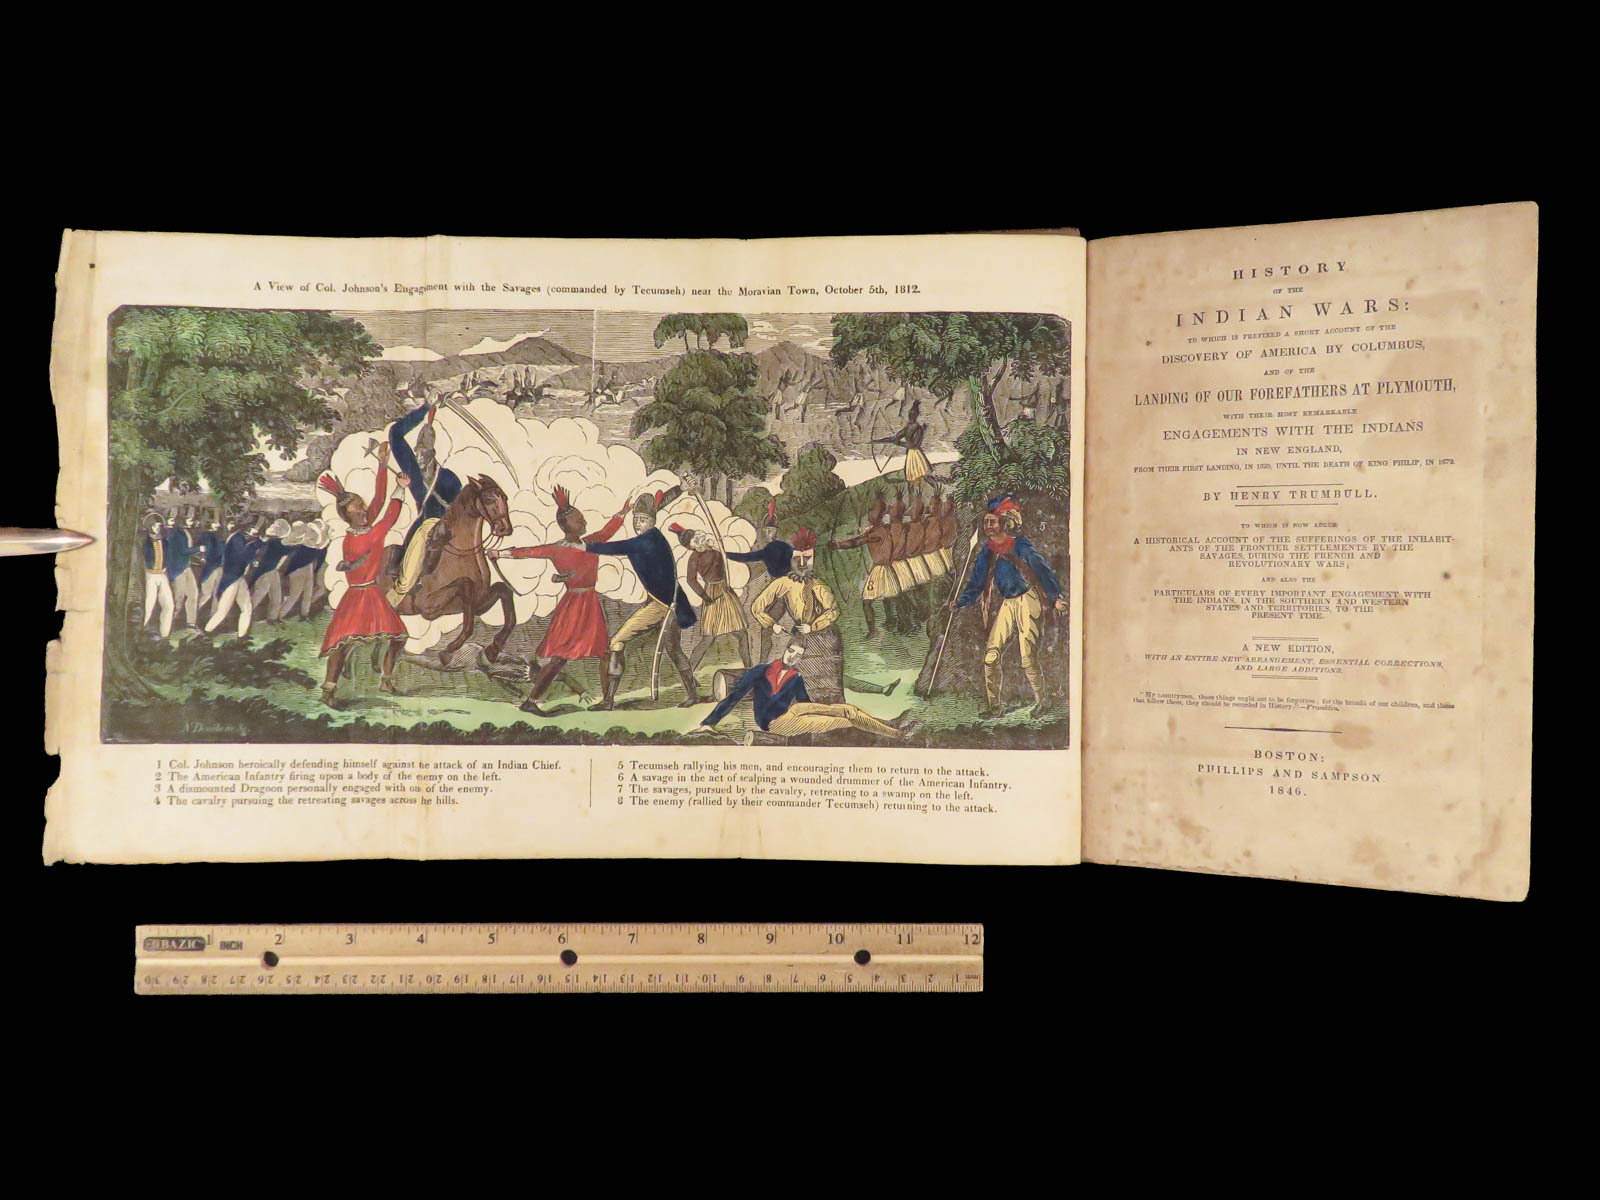 A View of Col. Johnson's Engagement with the Savages (commanded by Tecumseh) near the Moravian Town, October 5th, 1812.
5
8
1 Col. Johnson heroically defending himself against he attack of an Indian Chief.
2 The American Infantry firing upon a body of the enemy on the left.
3 A dismounted Dragoon personally engaged with one of the enemy.
4 The cavalry pursuing the retreating savages across he hills.
5 Tecumseh rallying his men, and encouraging them to return to the attack.
6 A savage in the act of scalping a wounded drummer of the American Infantry.
7 The savages, pursued by the cavalry, retreating to a swamp on the left.
8 The enemy (rallied by their commander Tecumseh) returning to the attack.
HISTORY
OF THE
INDIAN WARS:
TO WHICH IS PREFIXED A SHORT ACCOUNT OF THE
DISCOVERY OF AMERICA BY COLUMBUS,
AND OF THE
LANDING OF OUR FOREFATHERS AT PLYMOUTH,
WITH THEIR MOST REMARKABLE
ENGAGEMENTS WITH THE INDIANS
IN NEW ENGLAND,
FROM THEIR FIRST LANDING, IN 1620, UNTIL THE DEATH OF KING PHILIP, IN 1679.
BY HENRY TRUMBULL.
TO WHICH IS NOW ADDED
A HISTORICAL ACCOUNT OF THE SUFFERINGS OF THE INHABIT-
ANTS OF THE FRONTIER SETTLEMENTS BY THE
SAVAGES, DURING THE FRENCH AND
REVOLUTIONARY WARS;
AND ALSO THE
PARTICULARS OF EVERY IMPORTANT ENGAGEMENT WITH
THE INDIANS, IN THE SOUTHERN AND WESTERN
STATES AND TERRITORIES, TO THE
PRESENT TIME.
A NEW EDITION,
WITH AN ENTIRE NEW ARRANGEMENT, ESSENTIAL CORRECTIONS,
AND LARGE ADDITIONS.
"My countrymen, these things ought not to be forgotten; for the benefit of our children, and those
that follow them, they should be recorded in History."—Franklin.
BOSTON:
PHILLIPS AND SAMPSON.
1846.
BAZIC 1 INCH 2 3 4 5 6 7 8 9 10 11 12
30 29 28 27 26 25 24 23 22 21 20 19 18 17 16 15 14 13 12 11 10 9 8 7 6 5 4 3 2 1 mm